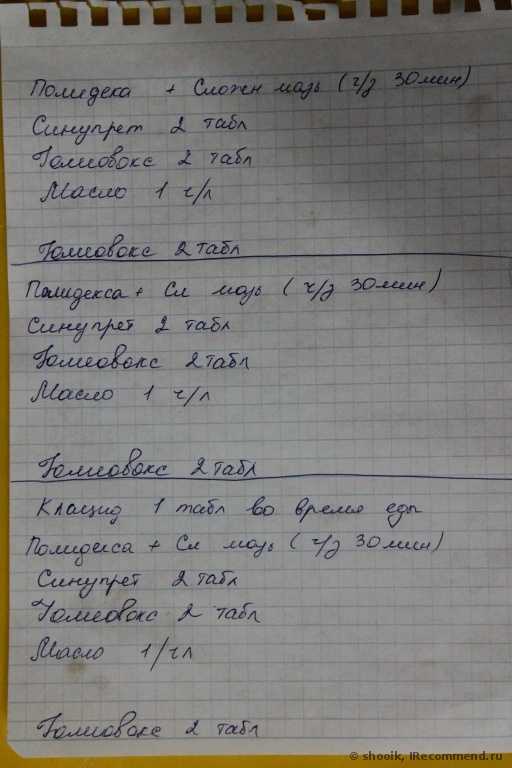 Полидека + Сложн мазь (ч/з 30 мин)
Синупрет 2 табл
Гомеовокс 2 табл
Масло 1 ч/л
Гомеовокс 2 табл
Полидекса + Сл мазь (ч/з 30 мин)
Синупрет 2 табл
Гомеовокс 2 табл
Масло 1 ч/л
Гомеовокс 2 табл
Клацид 1 табл во время еды
Полидекса + Сл мазь (ч/з 30 мин)
Синупрет 2 табл
Гомеовокс 2 табл
Масло 1/чл
Гомеовокс 2 табл
© shooik, IRecommend.ru